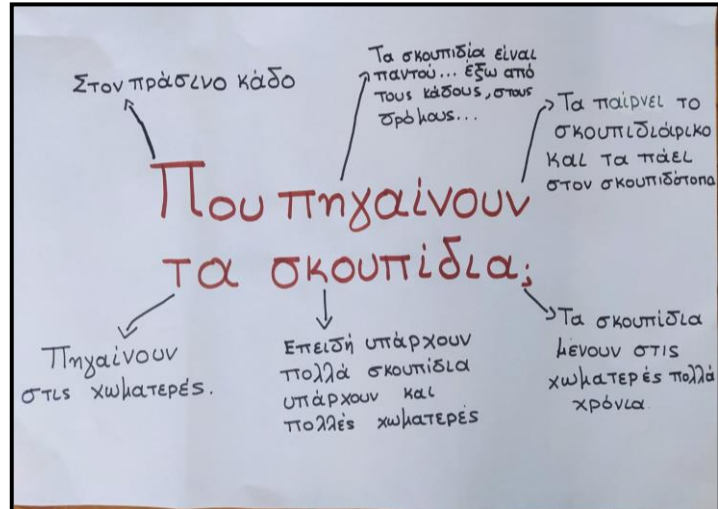 Στον πράσινο κάδο
Τα σκουπιδία είναι
παντού... έξω από
τους κάδους, στους
δρόμους...
Τα παίρνει το
σκουπιδιάρικο
και τα πάει
στον σκουπιδότοπο
Που πηγαίνουν
τα σκουπίδια;
Πηγαίνουν
στις χωματερές.
Επειδή υπάρχουν
πολλά σκουπίδια
υπάρχουν και
πολλές χωματερές
Τα σκουπίδια
μένουν στις
χωματερές πολλά
χρόνια.